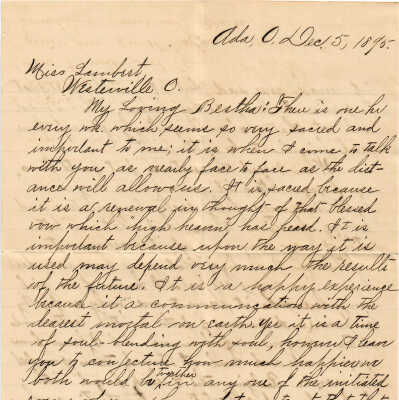 Ada, O. Dec. 5, 1895.
Miss Lambert,
Westerville O.
My Loving Bertha: There is one hr
every wk. which seems so very sacred and
important to me; it is when I come to talk
with you as nearly face to face as the dist-
ance will allow us. It is sacred because
it is a renewal in thought of that blessed
vow which high heaven has heard. It is
important because upon the way it is
used may depend very much, the results
of the future. It is a happy experience
because it a communication with the
dearest mortal on earth. Yes it is a time
of soul-blending with soul, however I leave
you to conjecture how much happier we
both would be together in any one of the initiated